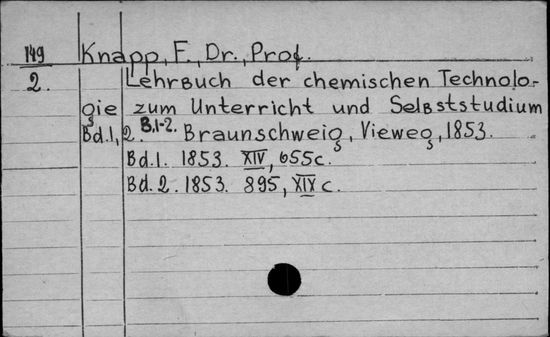 149 Knapp, F., Dr., Prof.
2. Lehrbuch der chemischen Technolo-
gie zum Unterricht und Selbststudium
Bd.1,2. B.1-2. Braunschweig, Vieweg, 1853.
Bd.1. 1853. XIV, 655c.
Bd.2. 1853. 895, XIX c.